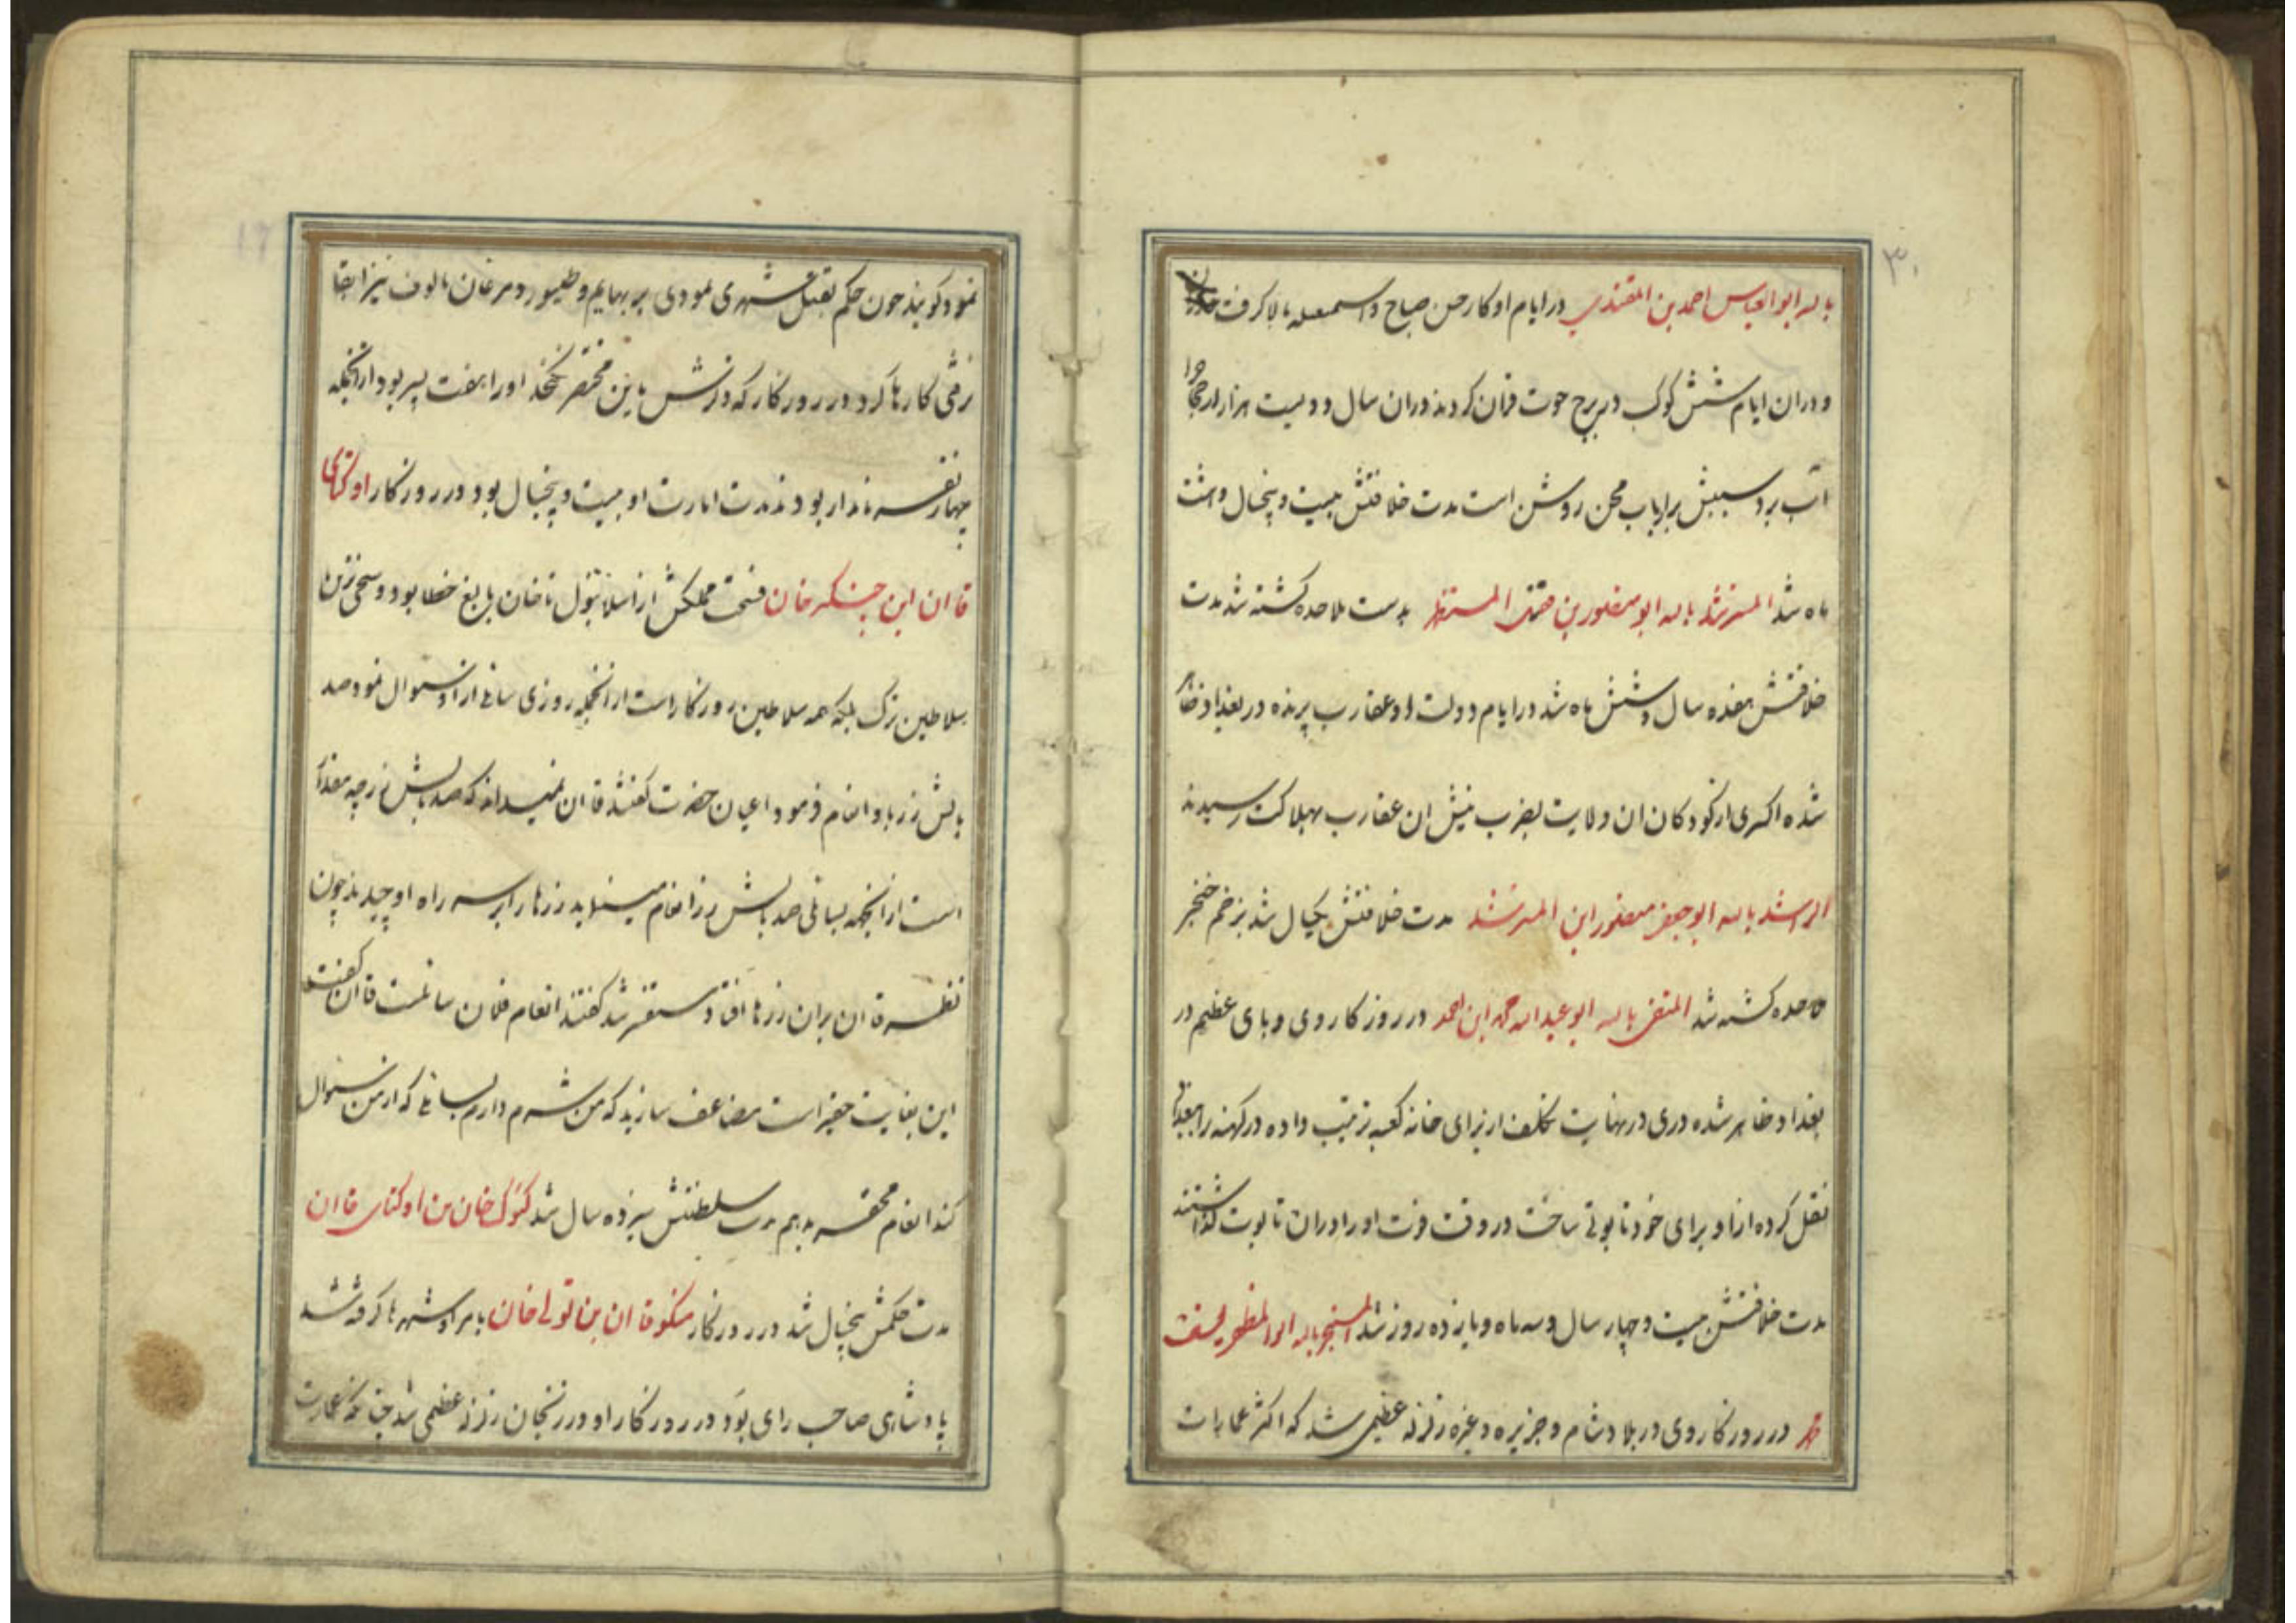 ۳۰
بالله ابو العباس احمد بن المقتدی در ایام او کار حسن صباح و اسمعیله بالا گرفت
و دران ایام شش کوکب در برج حوت قران کردند دران سال دویست هزار از حجاج را
آب برد سببش بر ارباب محن روشن است مدت خلافتش بیست و پنجسال و هشت
ماه شد المسترشد بالله ابو منصور بن المستظهر بدست ملاحده کشته شد مدت
خلافتش هفده سال و شش ماه شد در ایام دولت او عقارب پرنده در بغداد ظاهر
شده اکثری از کودکان ان ولایت بضرب نیش ان عقارب بهلاکت رسیدند
الراشد بالله ابو جعفر منصور ابن المسترشد مدت خلافتش یکسال شد بزخم خنجر
ملاحده کشته شد المقتفی بالله ابو عبدالله محمد ابن احمد در روزکار وی وبای عظیم در
بغداد ظاهر شده دری در نهایت تکلف از برای خانه کعبه ترتیب داده در کهنه را ببغداد
نقل کرده ازاو برای خود تابوتی ساخت در وقت فوت او را دران تابوت گذاشتند
مدت خلافتش بیست و چهار سال و سه ماه و پانزده روز شد المستنجد بالله ابو المظفر یوسف
در روزکار وی در بلاد شام و جزیره و غیره زلزله عظیمی شد که اکثر عمارات
۱۶
نمود کویند چون حکم بقتل شهری نمودی بر بهایم و طیور و مرغان مالوف نیز ابقا
نرفتی کارها کرد در روزکار که ذکرش باین مختصر نکنجد او را هفت پسر بود از انجمله
چهار نفر نامدار بودند مدت امارت او بیست و پنجسال بود در روزکار اوکتای
قاان ابن چنکیز خان فسحت مملکتش از اسلانبول تا خان بالیغ خطا بود و سخی ترین
سلاطین ترک بلکه همه سلاطین روزکار است از انجمله روزی سائلی از او سوال نمود صد
بالش زر باو انعام فرمود اعیان حضرت کفتند قاان نمیداند که صد بالش زر چه مقدار
است از انجهه بسائلی صد بالش زر انعام مینماید زرها را بر سر راه او چیدند چون
نظر قاان بران زرها افتاد مستفسر شد کفتند انعام فلان سائلست قاان کفت
این بغایت حقیر است مضاعف سازید که من شرم دارم بسائلی که از من سوال
کند انعام محقر بدهم مدت سلطنتش سیزده سال شد کیوک خان بن اوکتای قاان
مدت حکمش پنجسال شد در روزکار منکوقاان بن تولی خان بامر او شهرها کرفته شد
پادشاهی صاحب رای بود در روزکار او در زنجان زلزله عظمی شد چنانکه عمارت